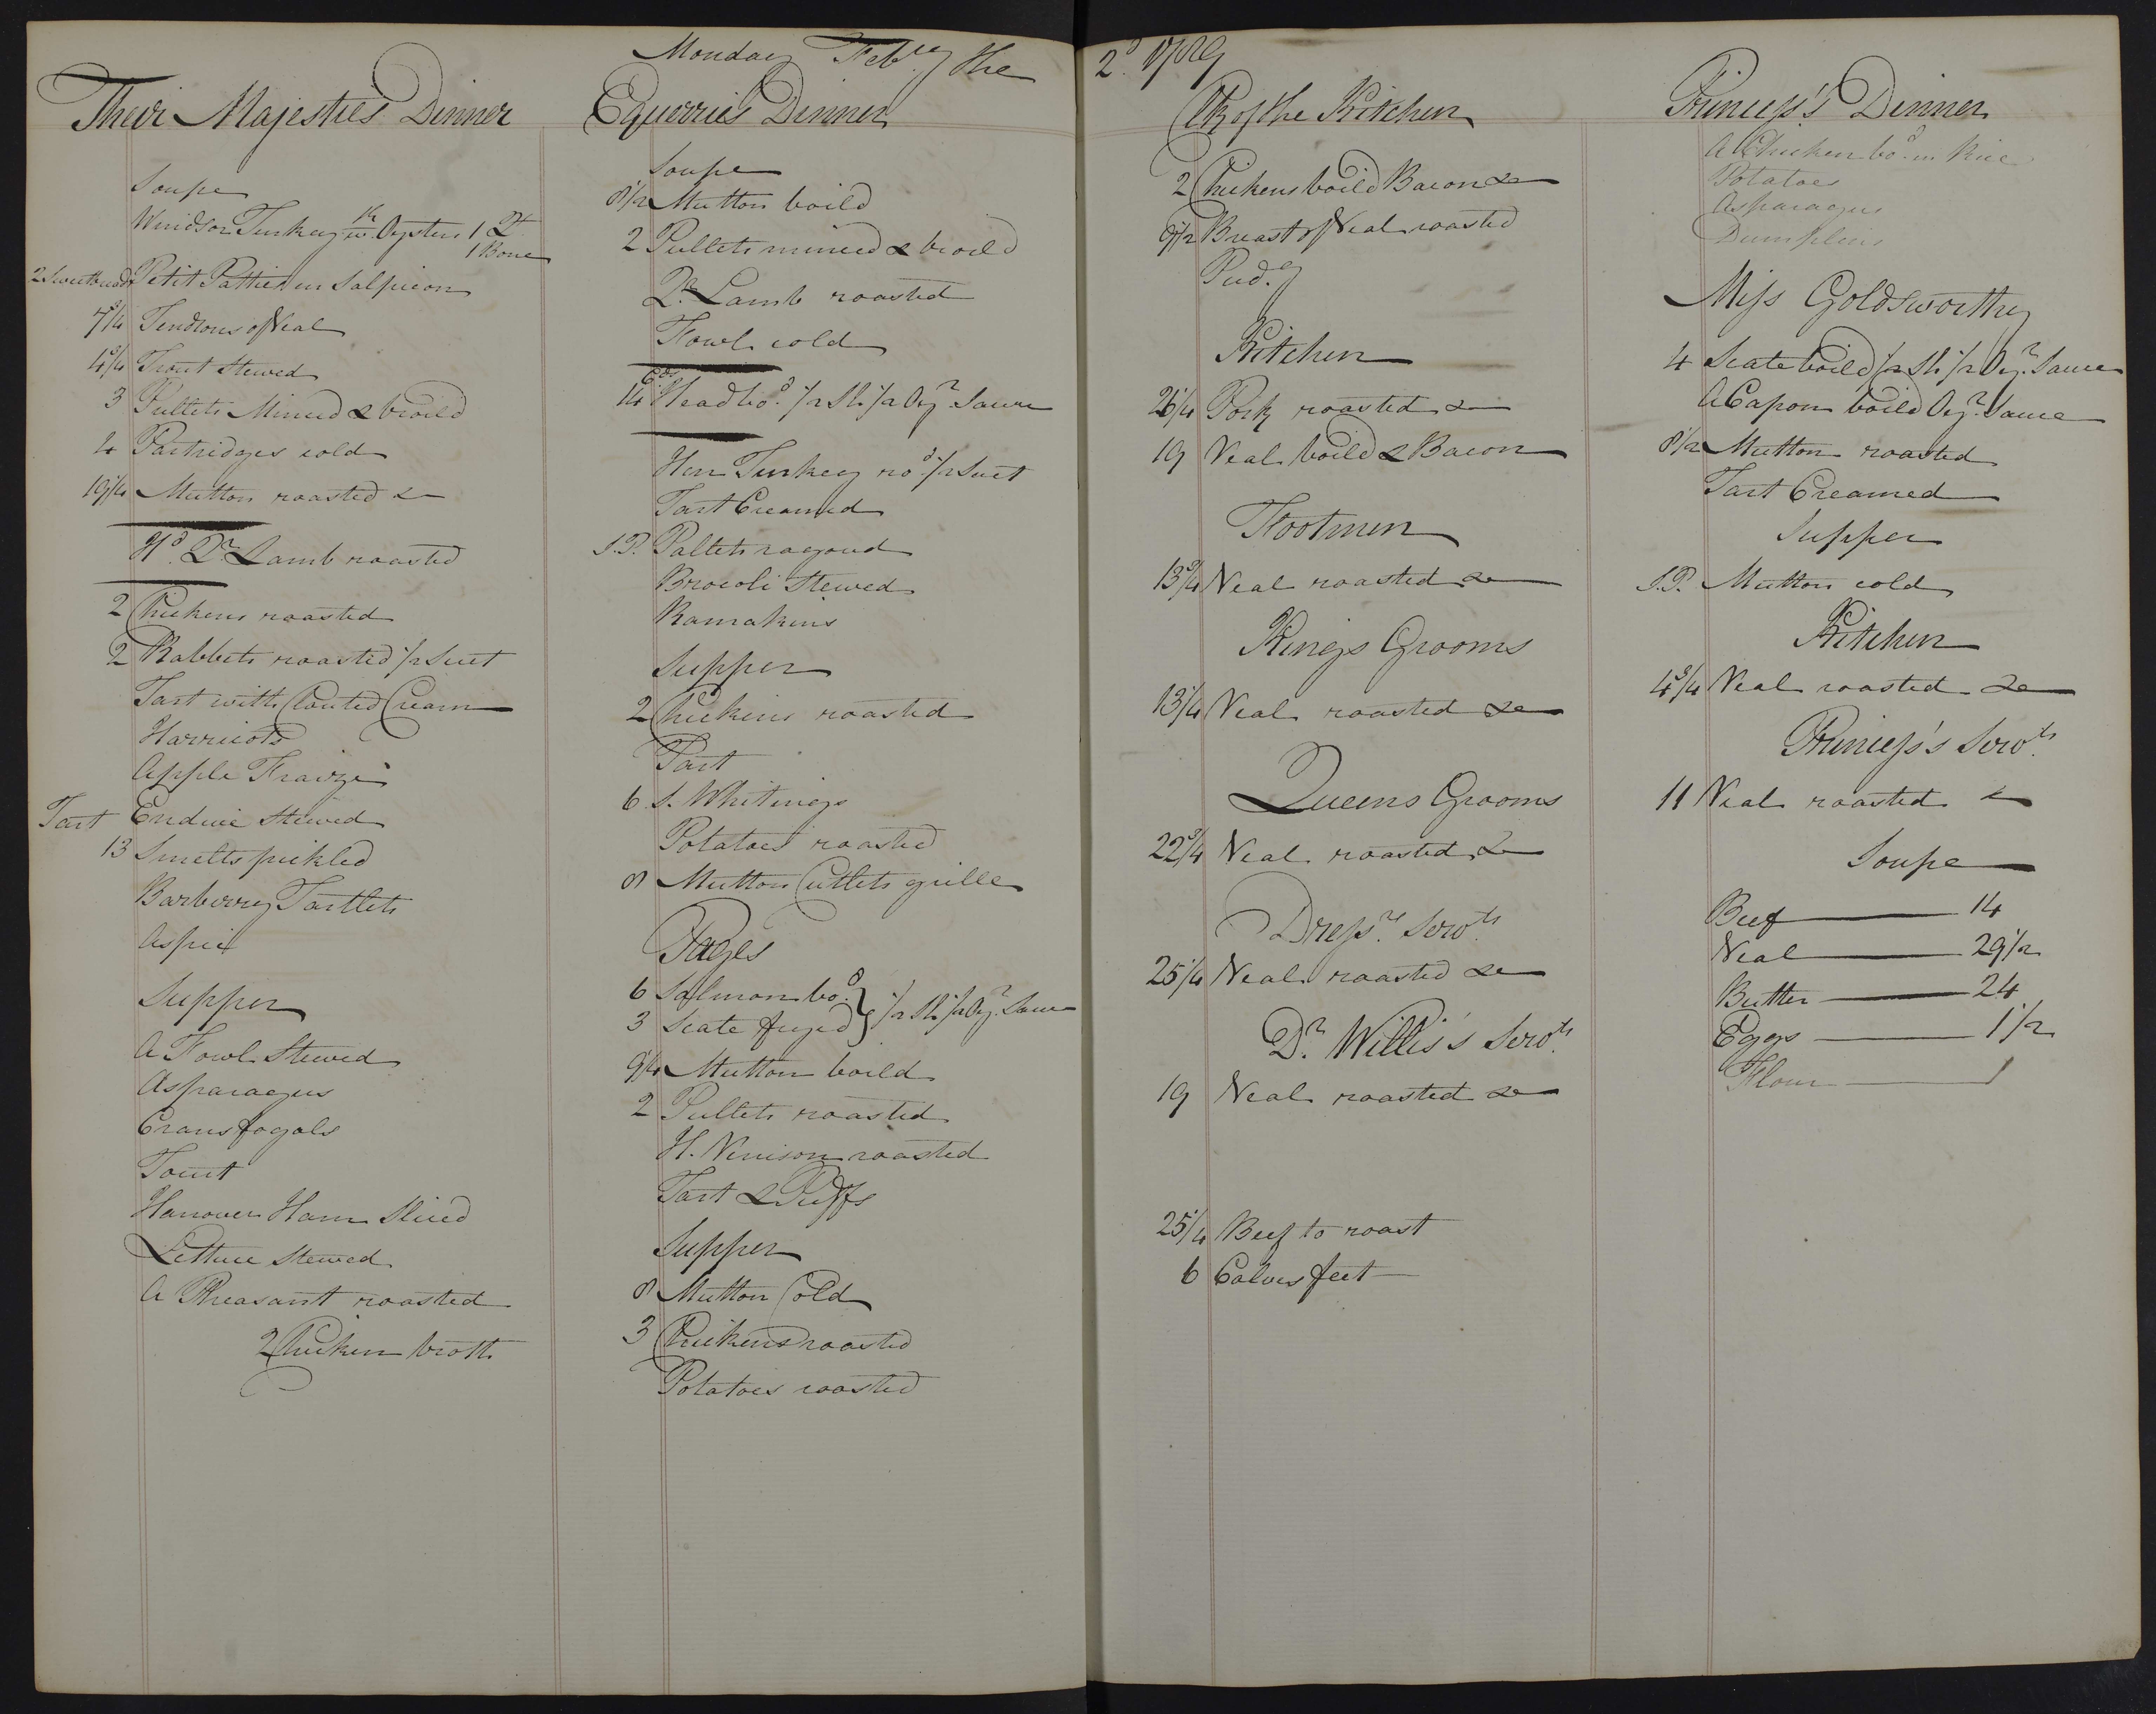 Monday Feb.ry the 2.d 1789
Their Majesties Dinner
Soupe
Windsor Turkey w. Oysters 1 Qt
1 Bone
2 Sweetbreads Petit Patties en Salpicon
7 3/4 Tendrons of Veal
4 3/4 Trout Stewed
3 Pullets Minced & broild
4 Partridges cold
19 1/4 Mutton roasted &
H.d Q.r Lamb roasted
2 Chickens roasted
2 Rabbets roasted 1/2 Suet
Tart with Clouted Cream
Harricots
Apple Fraize
Tart Endive Stewed
13 Smelts pickled
Barberry Tartlets
Aspic
Supper
A Fowl Stewed
Asparagus
Crawfish
Hanover Ham Sliced
Lettuce Stewed
A Pheasant roasted
2 Chicken broth
Equerrie's Dinner
Soupe
8 1/2 Mutton boild
2 Pullets minced & broild
Q.r Lamb roasted
Fowl cold
14 Cod's Head bo.d 1/2 Sh. 1/2 Oy.r Sauce
Hen Turkey ro.d 1/2 Suet
Tart Creamed
S.P. Pallets ragoud
Brocoli Stewed
Ramakins
Supper
2 Chickens roasted
Tart
6 S. Whitings
Potatoes roasted
8 Mutton Cutlets grille
Pages
6 Salmon bo.d
3 Scate fryed } 1/2 Sh. 1/2 Oy.r Sauce
9 1/4 Mutton boild
2 Pullets roasted
H. Venison roasted
Tart & Puffs
Supper
8 Mutton Cold
3 Chickens roasted
Potatoes roasted
Clk of the Kitchen
2 Chickens boild Bacon &
9 1/2 Breast of Veal roasted
Pud.g
Kitchen
26 1/4 Pork roasted &
19 Veal boild & Bacon
Footmen
13 3/4 Veal roasted &
Kings Grooms
13 1/4 Veal roasted &
Queens Grooms
22 3/4 Veal roasted &
Dress.rs Serv.ts
25 1/4 Veal roasted &
D.r Willis's Serv.ts
19 Veal roasted &
25 1/4 Beef to roast
6 Calves feet
Princess's Dinner
A Chicken bo.d w. Rice
Potatoes
Asparagus
Dumplins
Miss Goldsworthy
4 Scate boild 1/2 Sh. 1/2 Oy.r Sauce
A Capon boild Oy.r Sauce
8 1/2 Mutton roasted
Tart Creamed
Supper
S.P. Mutton cold
Kitchen
4 3/4 Veal roasted &
Princess's Serv.ts
11 Veal roasted &
Soupe
Beef 14
Veal 29 1/2
Butter 24
Eggs 1 1/2
Flour 1